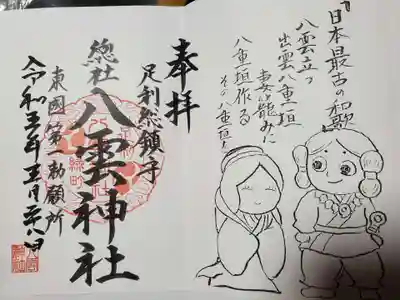 『日本最古の和歌』
八雲立つ
出雲八重垣
妻籠みに
八重垣作る
その八重垣を
奉拝
足利総鎮守
總社 八雲神社
東國第一勅願所
令和五年五月廿八日